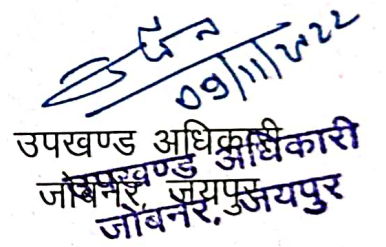 09/11/2022
उपखण्ड अधिकारी
जोबनेर, जयपुर
उपखण्ड अधिकारी
जोबनेर, जयपुर